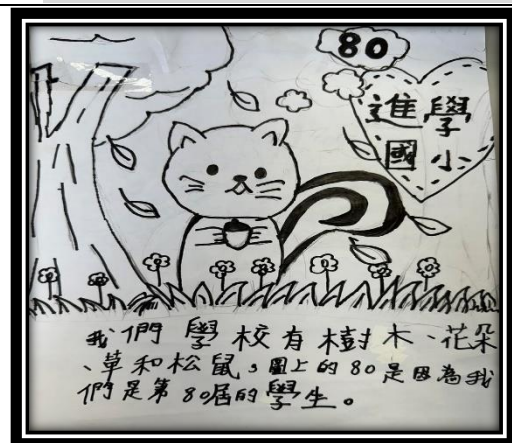 80
進學
國小
我們學校有樹木、花朵
、草和松鼠，圖上的80是因為我
們是第80屆的學生。